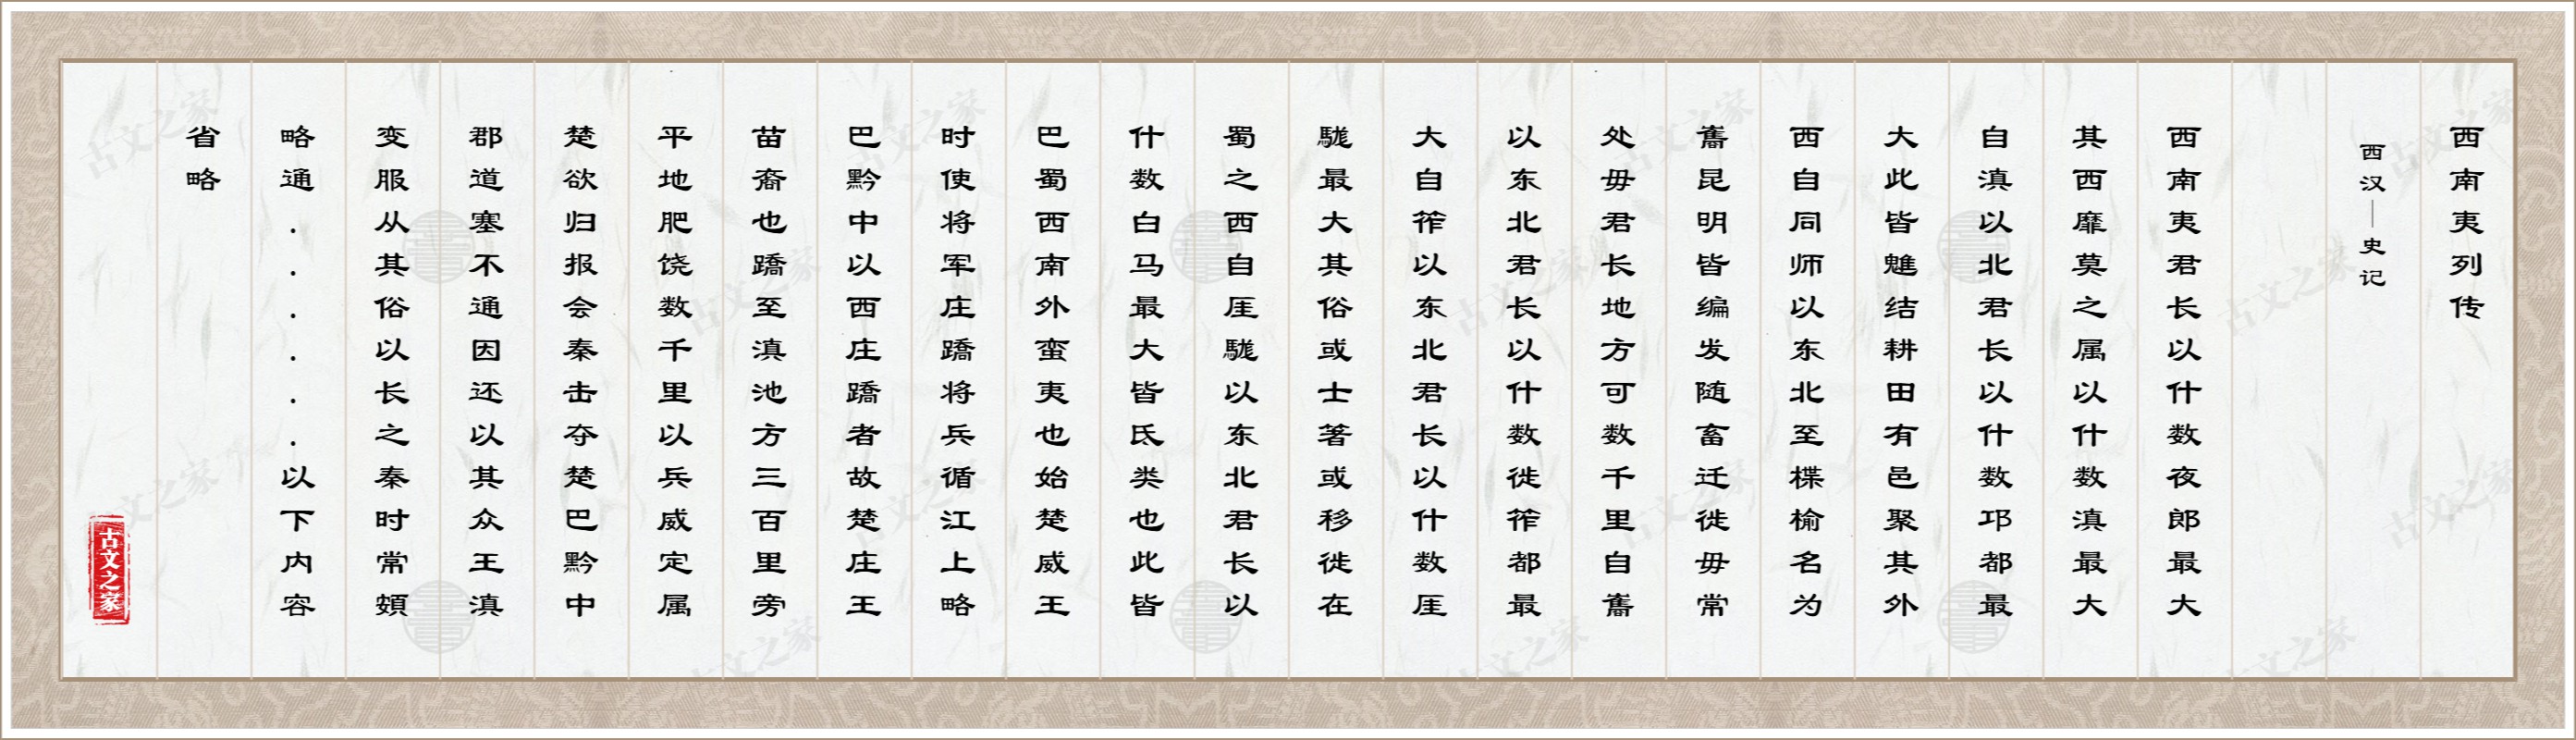 西南夷列传
西汉—史记
西南夷君长以什数夜郎最大
其西靡莫之属以什数滇最大
自滇以北君长以什数邛都最
大此皆魋结耕田有邑聚其外
西自同师以东北至楪榆名为
巂昆明皆编发随畜迁徙毋常
处毋君长地方可数千里自巂
以东北君长以什数徙筰都最
大自筰以东北君长以什数厓
駹最大其俗或士箸或移徙在
蜀之西自厓駹以东北君长以
什数白马最大皆氐类也此皆
巴蜀西南外蛮夷也始楚威王
时使将军庄蹻将兵循江上略
巴黔中以西庄蹻者故楚庄王
苗裔也蹻至滇池方三百里旁
平地肥饶数千里以兵威定属
楚欲归报会秦击夺楚巴黔中
郡道塞不通因还以其众王滇
变服从其俗以长之秦时常頞
略通......以下内容
省略
古文之家